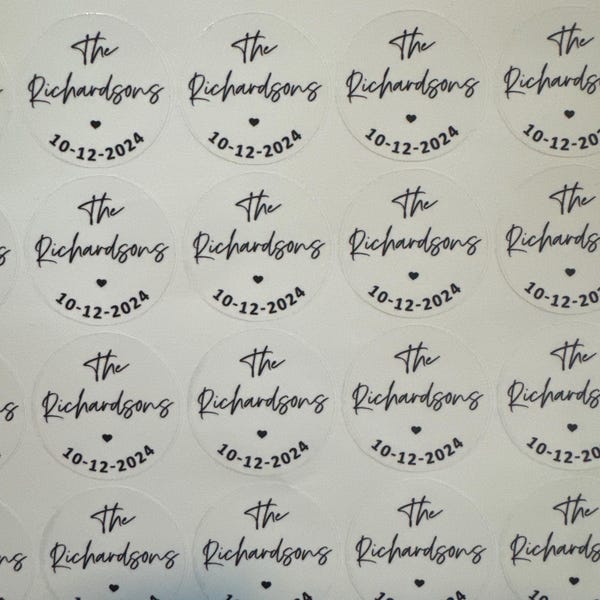 The The The The
Richardsons Richardsons Richardsons Richardsons
10-12-2024 10-12-2024 10-12-2024 10-12-20
The The The The
s Richardsons Richardsons Richardsons Richardsons
10-12-2024 10-12-2024 10-12-2024 10-12-20
The The The The
s Richardsons Richardsons Richardsons Richardsons
10-12-2024 10-12-2024 10-12-2024 10-12-20
The The The The
ns Richardsons Richardsons Richardsons Richardsons